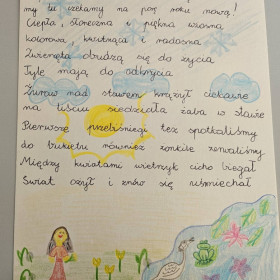 my tu czekamy na porę roku nową!
Ciepła, słoneczna i piękna wiosna
kolorowa, kwitnąca i radosna
Zwierzęta obudzą się do życia
Tyle mają do odkrycia
Żuraw nad stawem krążył ciekawie
na liściu siedziała żaba w stawie
Pierwsze przebiśniegi też spotkaliśmy
do bukietu również żonkile zerwaliśmy
Między kwiatami wietrzyk cicho biegał
Świat ożył i znów się uśmiechał